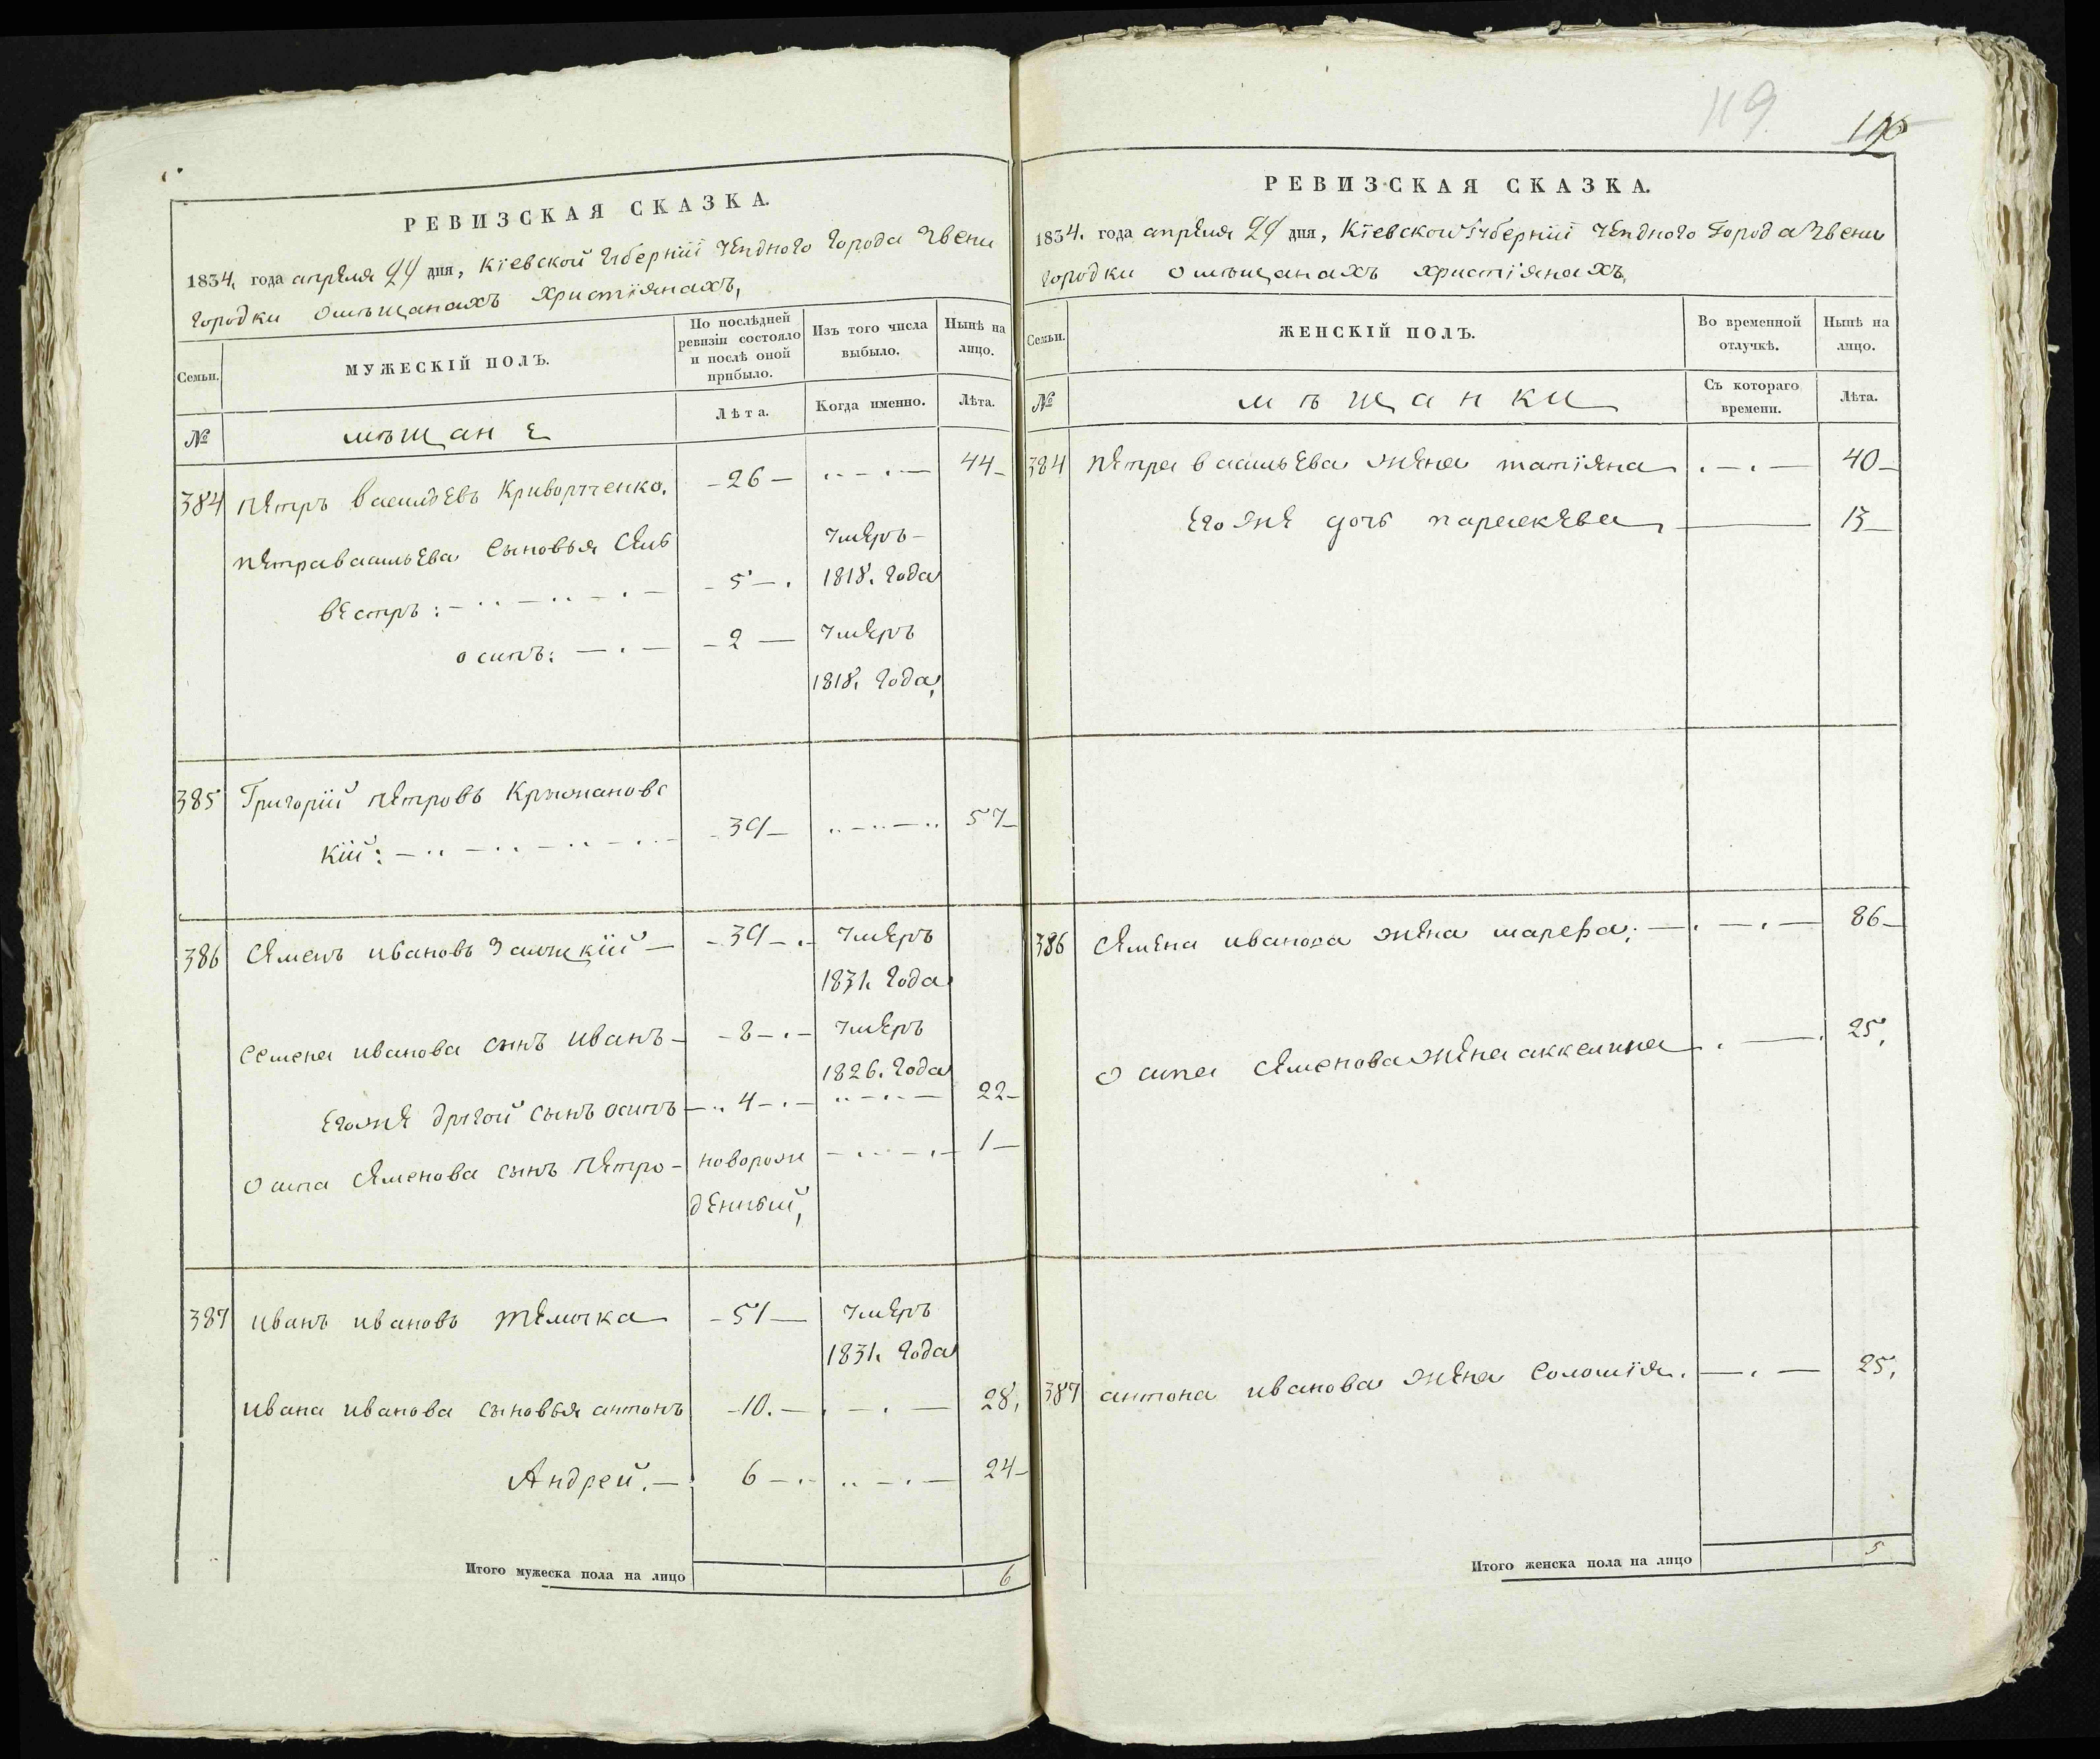 РЕВИЗСКАЯ СКАЗКА.
1834. года апреля 24 дня, Кіевской губерніи уездного города Звени
городки о мѣщанахъ христіянахъ,
Семьи.
МУЖЕСКІЙ ПОЛЪ.
По послѣдней ревизіи состояло и послѣ оной прибыло.
Изъ того числа выбыло.
Нынѣ на лицо.
№
мѣщане
Лѣта.
Когда именно.
Лѣта.
384 Петръ васильевъ Криворученко. 26 44
Петра васильева сыновья Силь 5 умеръ
вестръ: 1818. года
осипъ: 2 умеръ
1818. года,
385 Григорій Петровъ Крыжановс
кій: 39 57
386 Семенъ ивановъ 39 умеръ
1831. года
Семена иванова сынъ иванъ 8 умеръ
1826. года
его же другой сынъ осипъ 4 22
осипа Семенова сынъ Петро новорож 1
денный,
387 иванъ ивановъ темочка 51 умеръ
1831. года
ивана иванова сыновья антонъ 10. 28,
Андрей. 6 24
Итого мужеска пола на лицо 6
119
РЕВИЗСКАЯ СКАЗКА.
1834. года апреля 24 дня, Кіевской губерніи уездного города Звени
городки о мѣщанахъ христіянахъ,
Семьи.
ЖЕНСКІЙ ПОЛЪ.
Во временной отлучкѣ.
Нынѣ на лицо.
№
мѣщанки
Съ котораго времени.
Лѣта.
384 Петра васильева жена татіяна 40
его же дочь параскева 13
386 Семена иванова жена марефа; 86
осипа Семенова жена аккелина 25,
387 антона иванова жена Соломія. 25,
Итого женска пола на лицо 5